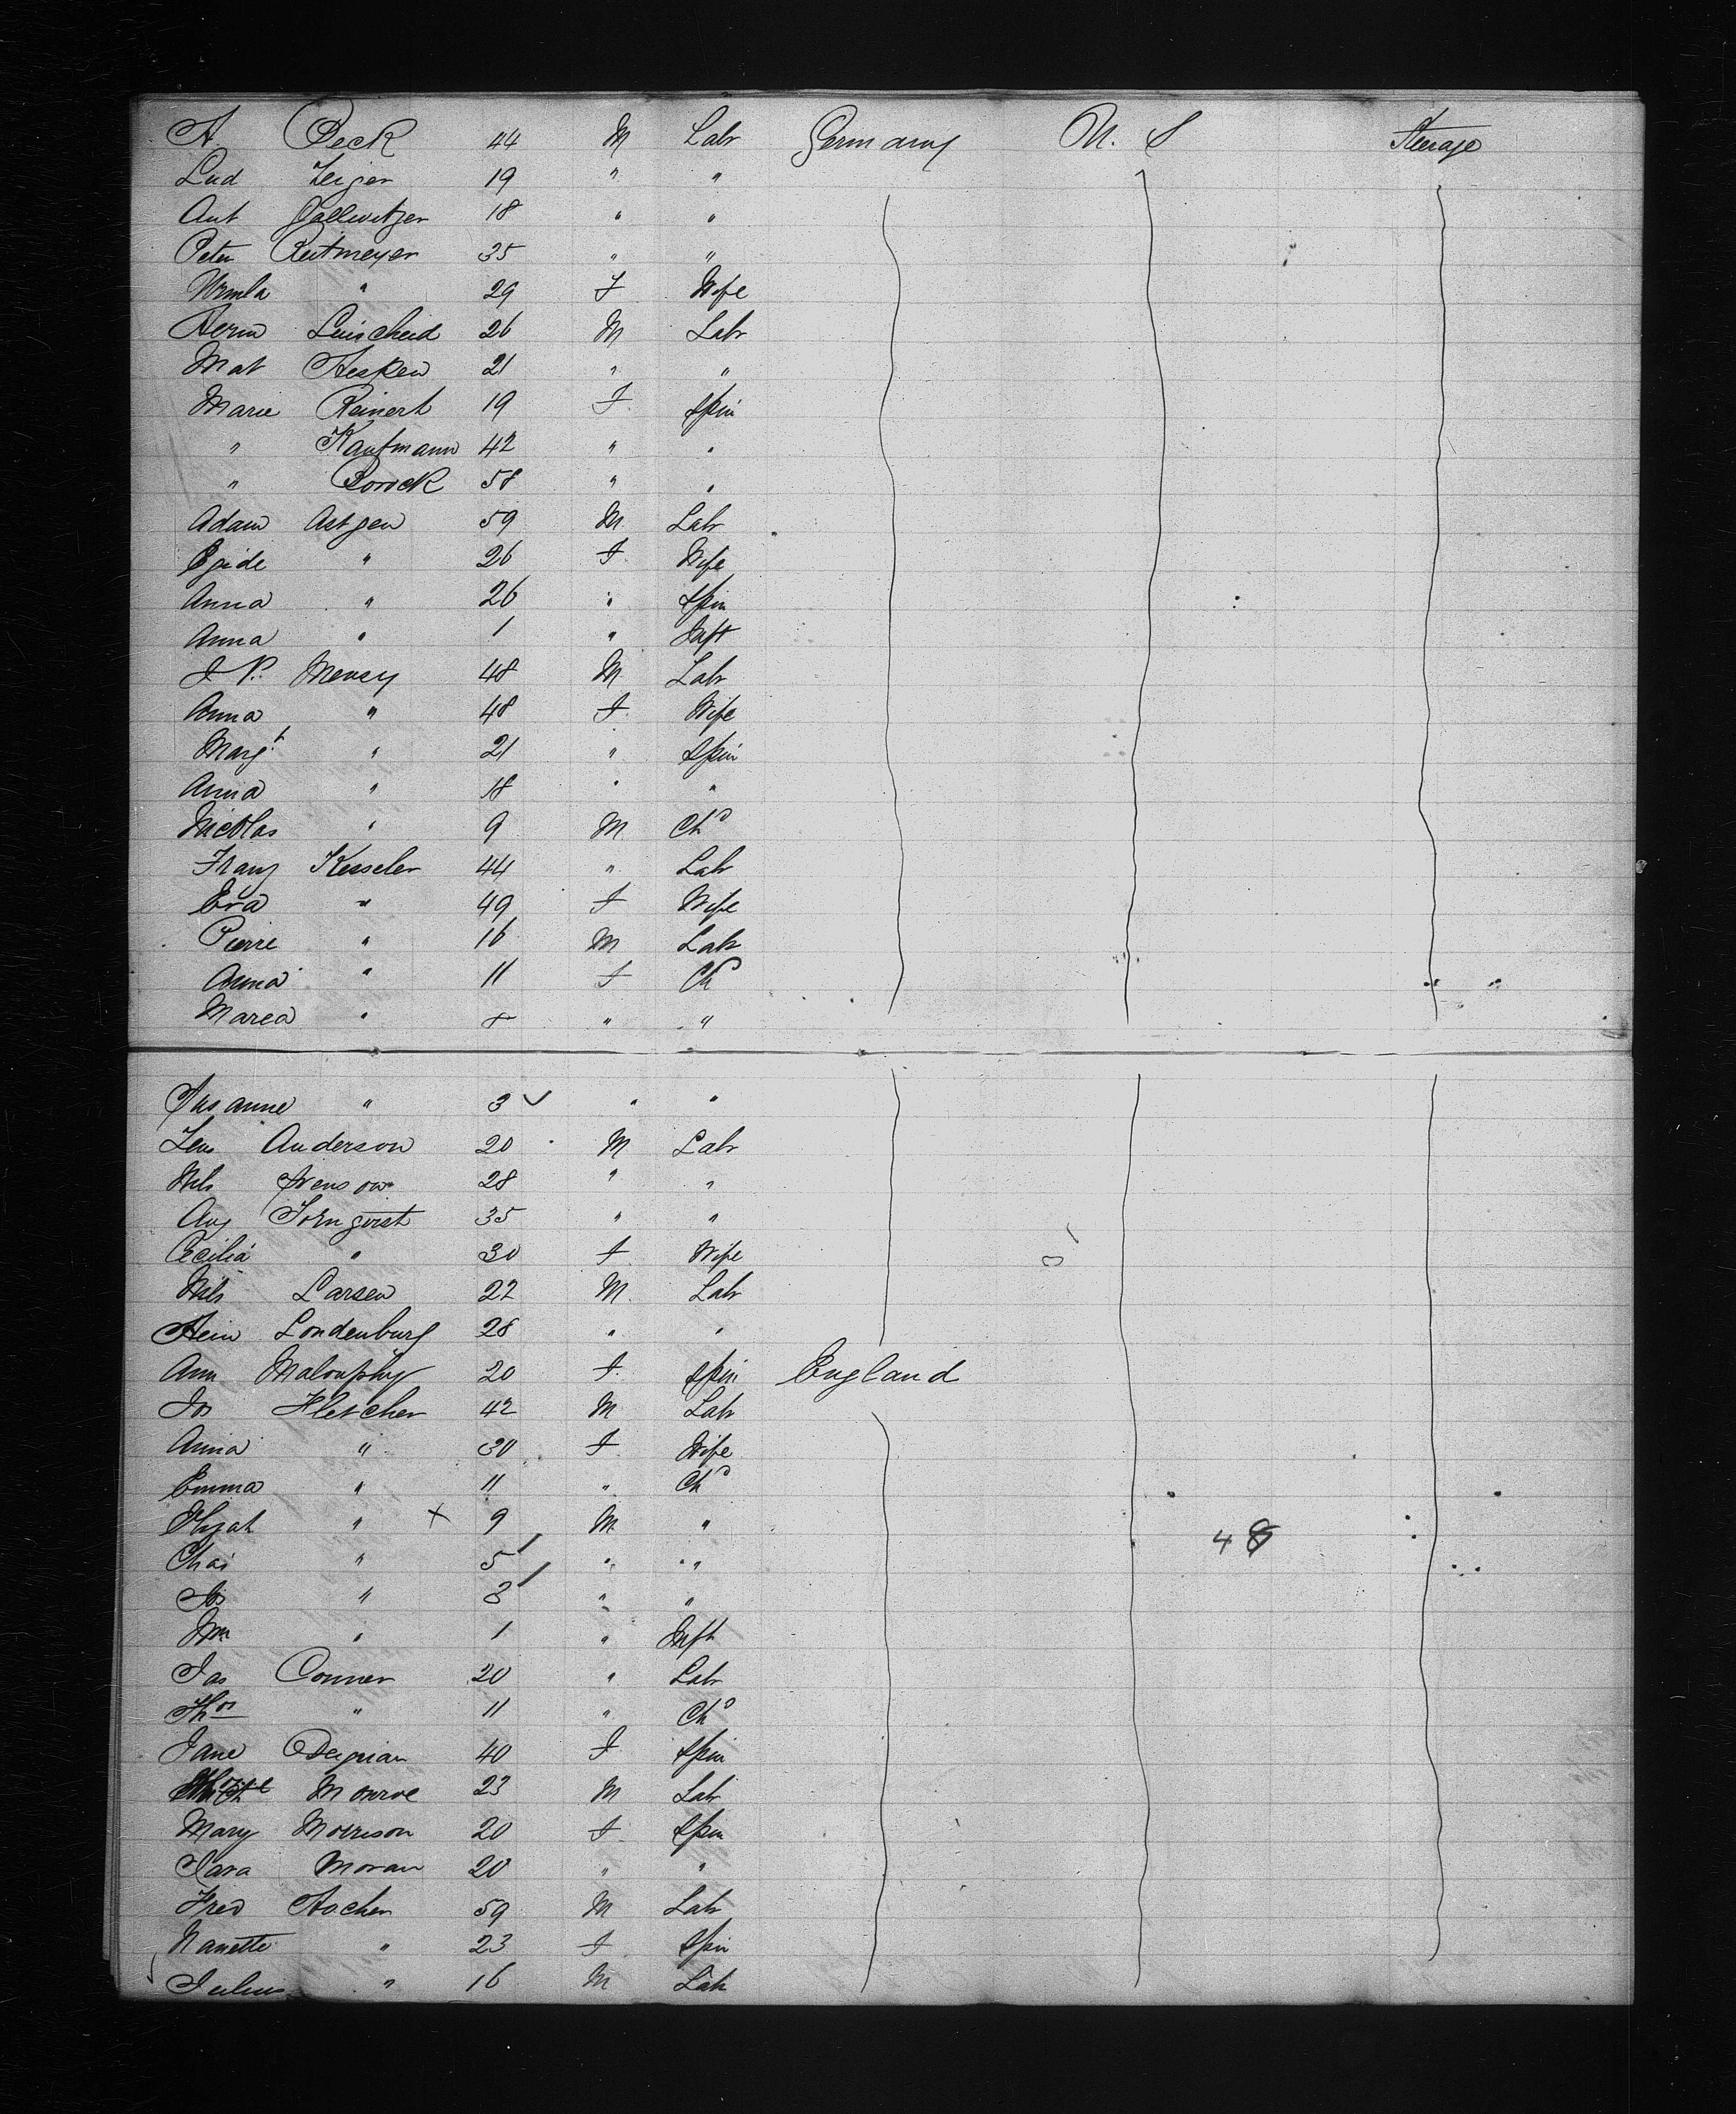 A Peck 44 M Labr Germany U. S Steerage
Lud Zeiger 19 " "
Ant Gallwitzer 18 " "
Peter Reitmeyer 35 " "
Ursula " 29 F Wife
Herm Leuscheid 26 M Labr
Mat Hesken 21 " "
Marie Reinert 19 F Spin
" Kaufmann 42 " "
" Borock 58 " "
Adam Astgen 59 M Labr
Egide " 26 F Wife
Anna " 26 " Spin
Anna " 1 " Inft
J P. Mency 48 M Labr
Anna " 48 F Wife
Margt " 21 " Spin
Anna " 18 " "
Nicolas " 9 M Chd
Franz Kesseler 44 " Labr
Eva " 49 F Wife
Pierre " 16 M Labr
Anna " 11 F Chd
Marea " " "
Susanne " 3 " "
Jens Anderson 20 M Labr
Nils Svenson 28 " "
Aug Tornqvist 35 " "
Cecilia " 30 F Wife
Nils Larsen 22 M Labr
Hein Londenburg 28 " "
Ann Malouphy 20 F Spin England
Jos Fletcher 42 M Labr
Anna " 30 F Wife
Emma " 11 " Chd
Elijah " x 9 M "
48
Chas " 5 " "
Jos " 3 " "
Wm " 1 " Inft
Jas Conner 20 " Labr
Thos " 11 " Chd
Jane Deignan 40 F Spin
Monroe 23 M Labr
Mary Morrison 20 F Spin
Sara Moran 20 " "
Fred Aocher 59 M Labr
Nanette " 23 F Spin
Julius " 16 M Labr